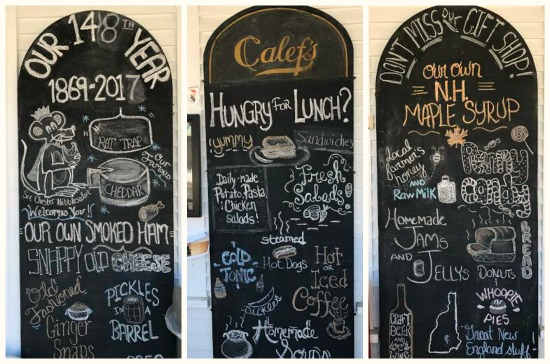 OUR 148th YEAR
1869-2017
RAT TRAP
CHEDDAR
Our Famous
Sir Chester Nibblesworth
Welcomes You!!
OUR OWN SMOKED HAM
SNAPPY OLD CHEESE
Old Fashioned
Ginger
Snaps
PICKLES
IN A
BARREL
Calef's
HUNGRY FOR LUNCH?
yummy
Sandwiches
Daily-made
Potato Pasta
Chicken
Salads!
Fresh
Salads
steamed
Hot Dogs
COLD
TONIC
Hot
or
Iced
Coffee
pickles
Homemade
Soups
DON'T MISS our GIFT SHOP!
our own
N.H.
MAPLE SYRUP
Local
farmer's
Honey
AND
Raw Milk
Penny
Candy
Homemade
JAMS
AND
JELLYS
BREAD
DONUTS
WHOOPIE
PIES
Craft
BEER
and
Great New
England Stuff!